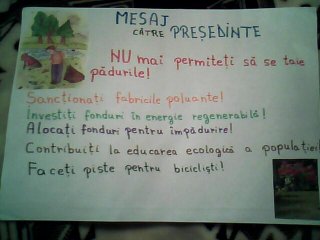 MESAJ
CĂTRE PREȘEDINTE
NU mai permiteți să se taie
pădurile!
Sancționați fabricile poluante!
Investiți fonduri în energie regenerabilă!
Alocați fonduri pentru împădurire!
Contribuiți la educarea ecologică a populației!
Faceți piste pentru bicicliști!